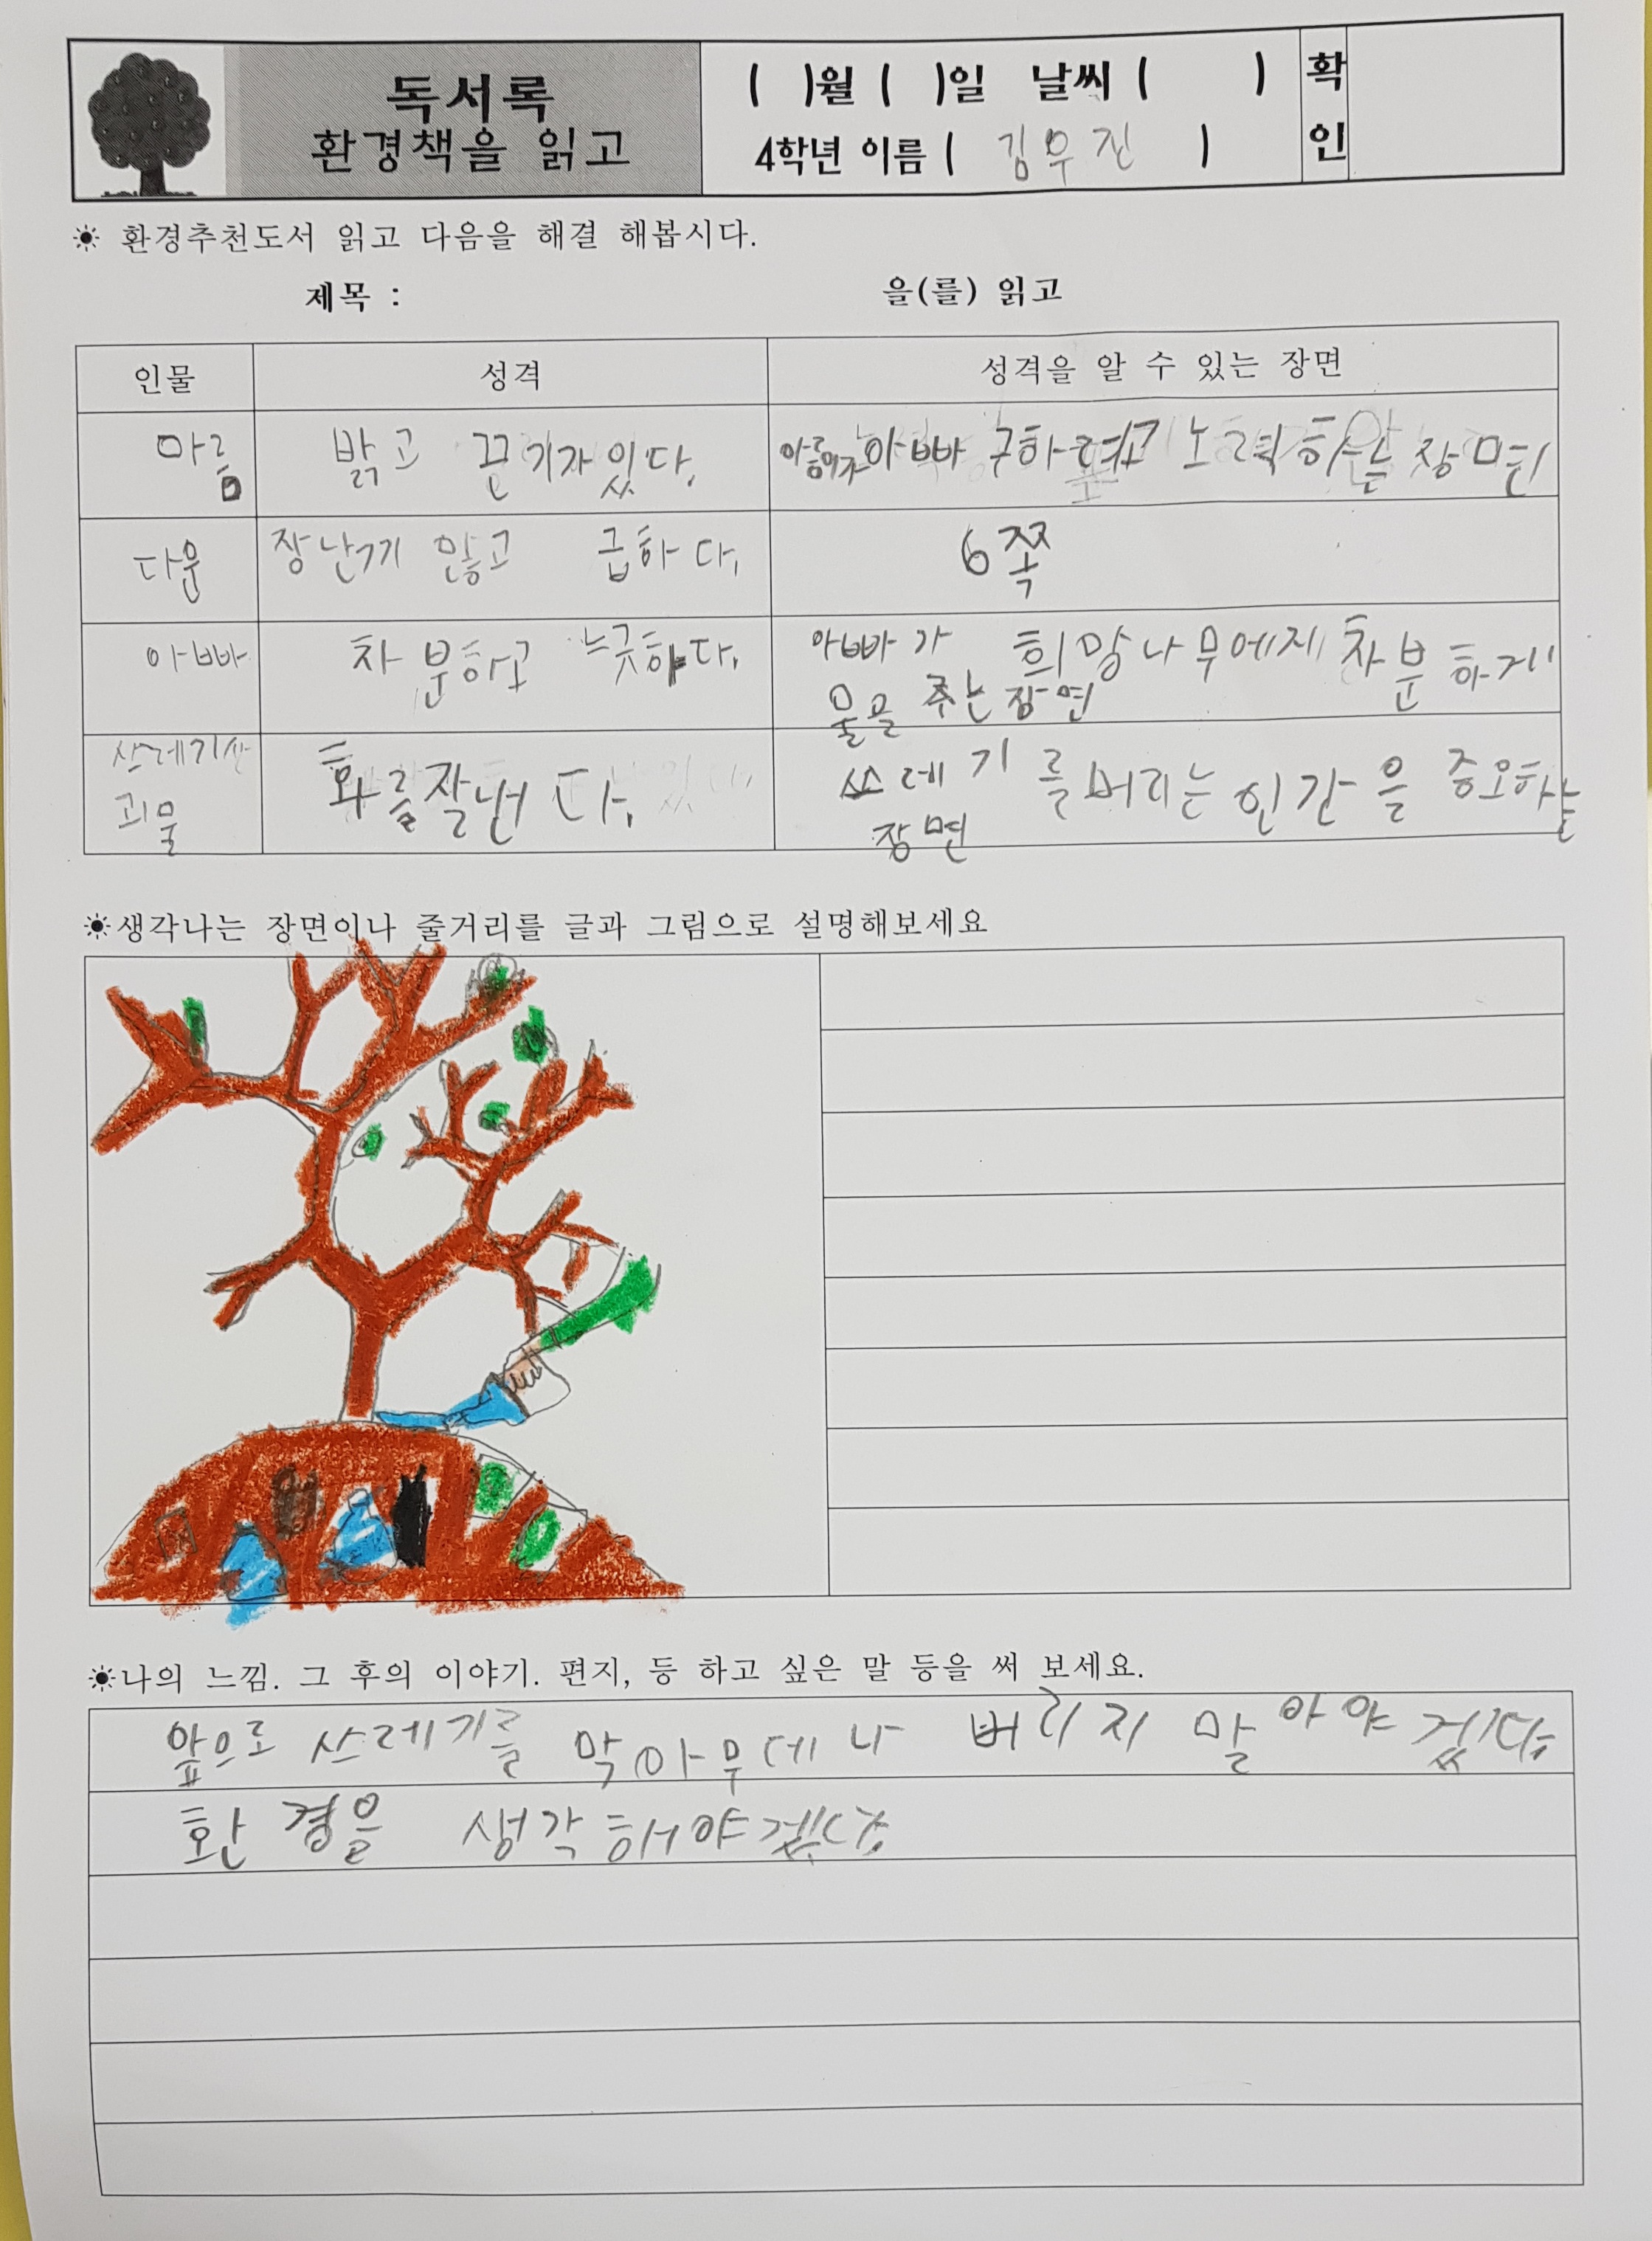 독서록
환경책을 읽고
( )월 ( )일 날씨 ( )
4학년 이름 ( 김우진 )
확인
환경추천도서 읽고 다음을 해결 해봅시다.
제목 : 을(를) 읽고
인물 성격 성격을 알 수 있는 장면
아름 밝고 끈기가있다. 아름이가 아빠 구하려고 노력하는 장면
다운 장난기 많고 급하다. 6쪽
아빠 차분하고 느긋하다. 아빠가 희망나무에게 차분하게
물을 주는 장면
쓰레기산 화를잘낸다. 쓰레기를버리는 인간을 증오하는
괴물 장면
생각나는 장면이나 줄거리를 글과 그림으로 설명해보세요
나의 느낌. 그 후의 이야기. 편지, 등 하고 싶은 말 등을 써 보세요.
앞으로 쓰레기를 막아무데나 버리지 말아야겠다.
환경을 생각해야겠다.